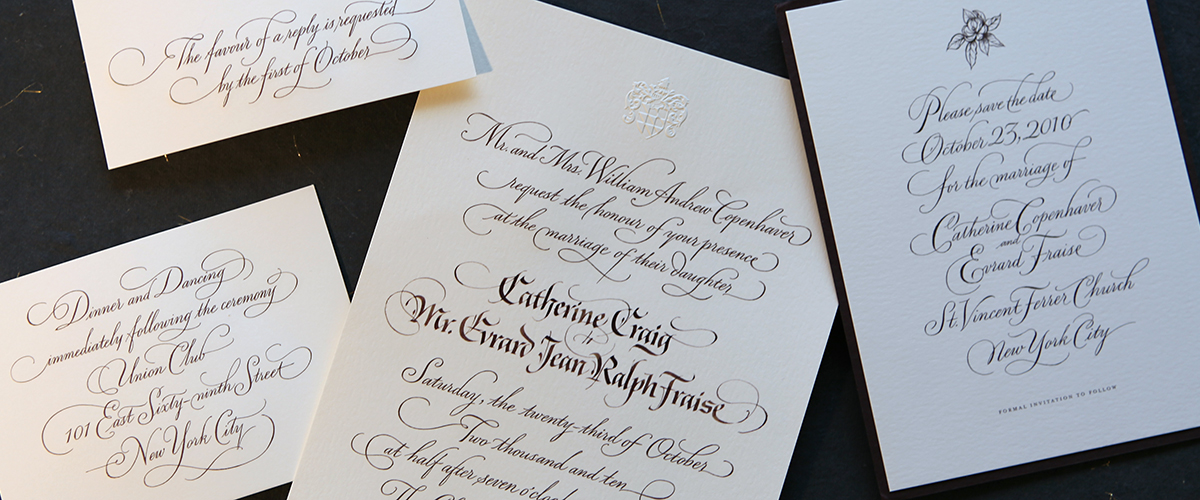 The favour of a reply is requested
by the first of October
Dinner and Dancing
immediately following the ceremony
Union Club
101 East Sixty-ninth Street
New York City
Mr. and Mrs. William Andrew Copenhaver
request the honour of your presence
at the marriage of their daughter
Catherine Craig
to
Mr. Evrard Jean Ralph Fraise
Saturday, the twenty-third of October
Two thousand and ten
at half after seven o'clock
Please save the date
October 23, 2010
for the marriage of
Catherine Copenhaver
and
Evrard Fraise
St. Vincent Ferrer Church
New York City
FORMAL INVITATION TO FOLLOW